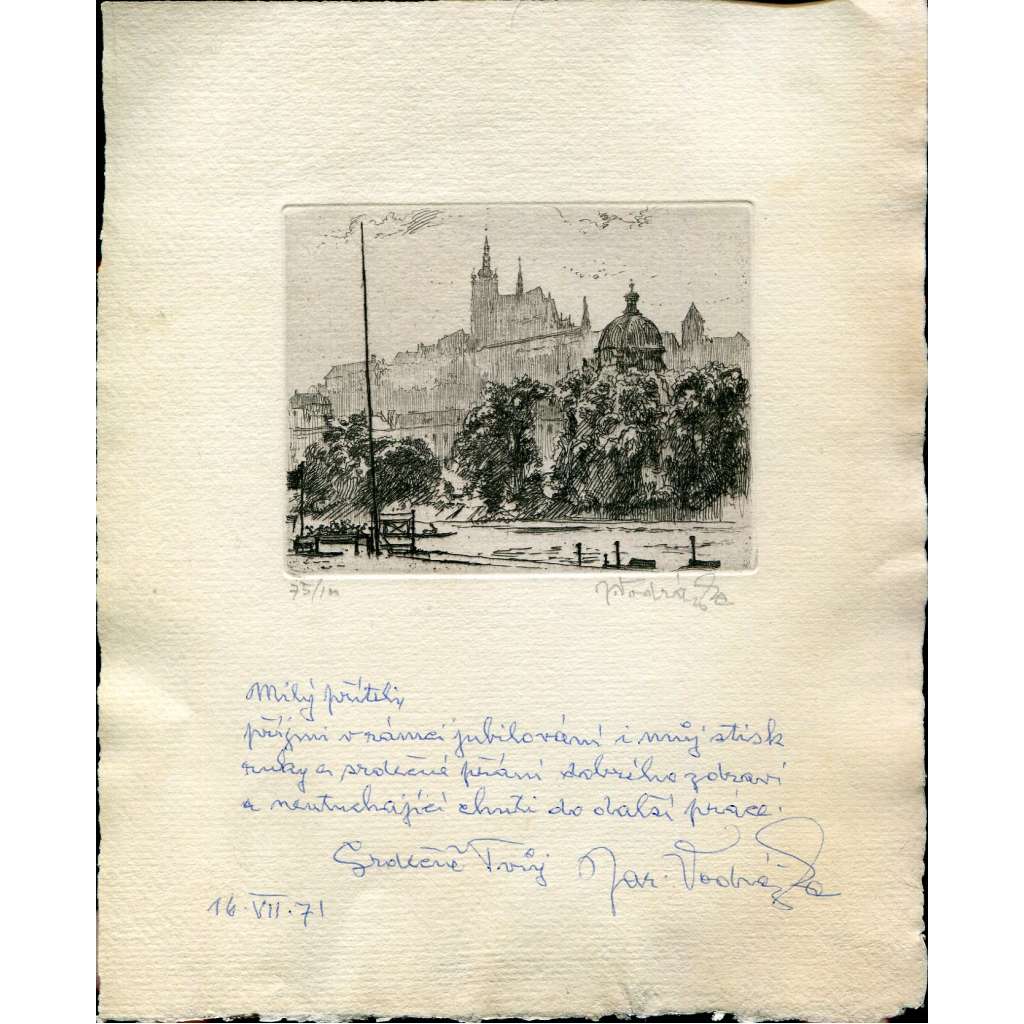 75/100
J. Vodrážka
Milý příteli,
přijmi v rámci jubilování i můj stisk
ruky a srdečné přání dobrého zdraví
a neutuchající chuti do další práce.
Srdečně Tvůj Jar. Vodrážka
16.VII.71